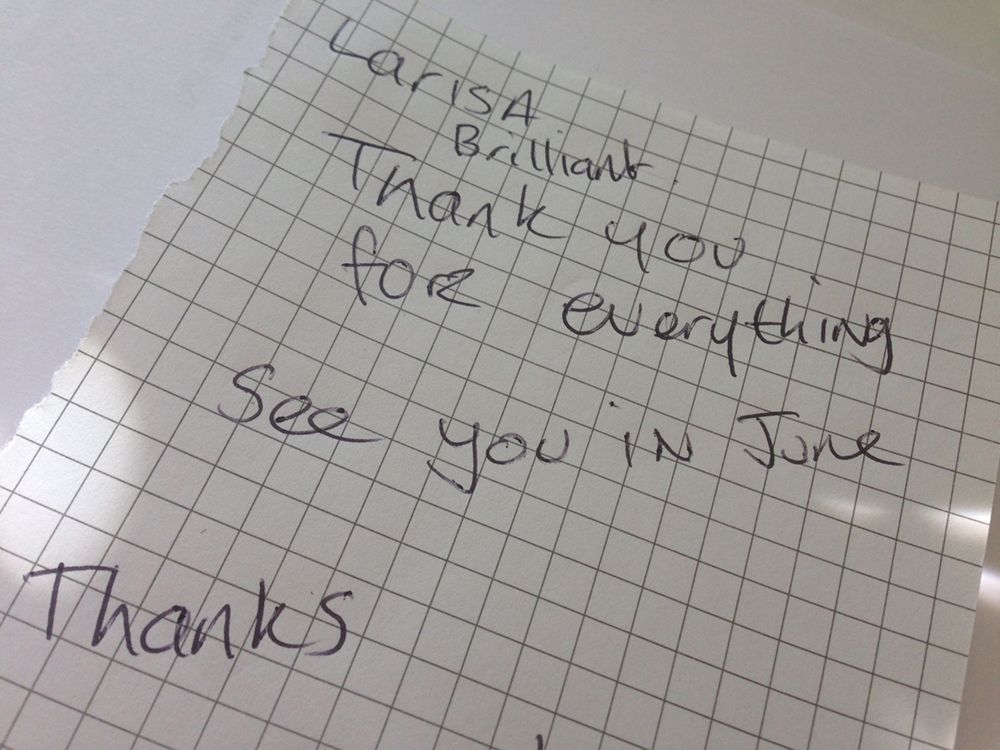 LarisA
Brilliant.
Thank you
for everything
See you in June
Thanks